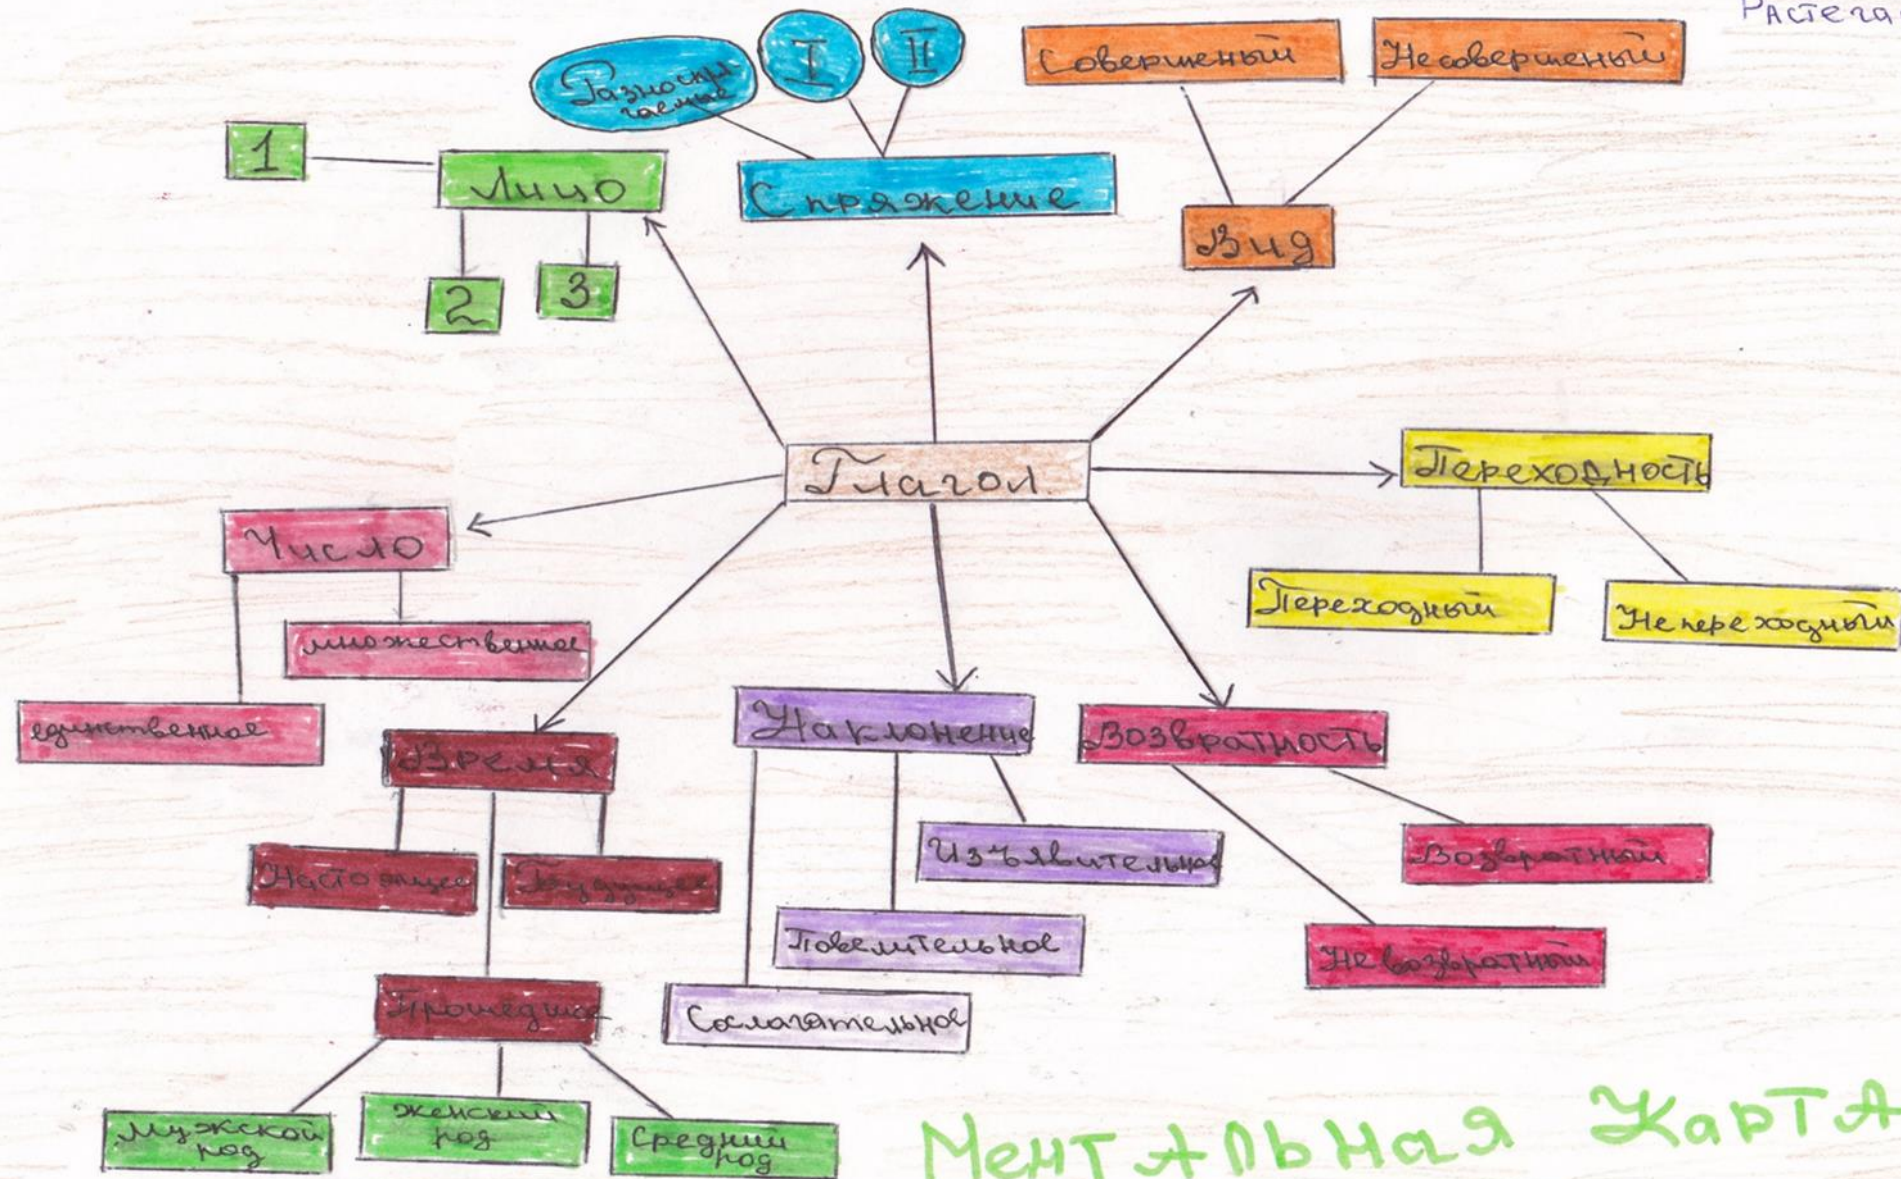 Растега
Разноспря
гаемые
I
II
Совершеный
Несовершеный
1
Лицо
Спряжение
Вид
2
3
Глагол
Переходность
Число
Переходный
Непереходный
множественное
единственное
Время
Наклонение
Возвратность
Настоящее
Будущее
Изъявительное
Возвратный
Повелительное
Не возвратный
Прошедшее
Сослагательное
Мужской
род
женский
род
Средний
род
Ментальная Карта